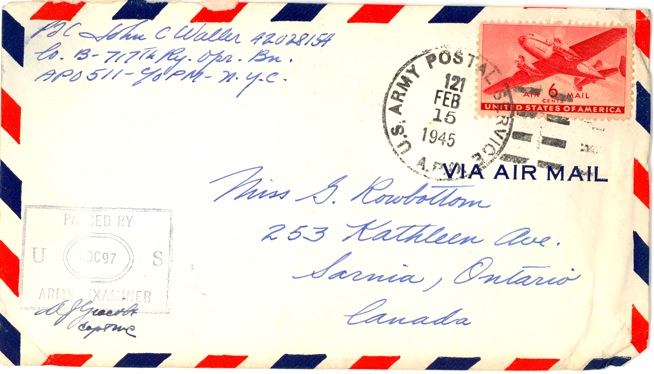 Pfc John C Waller 42028154
Co. B-717th Ry. Opr. Bn.
APO 511-%PM-N.Y.C.
U.S. ARMY POSTAL SERVICE
121
FEB
15
1945
A.P.O.
AIR 6 MAIL
CENTS
UNITED STATES OF AMERICA
VIA AIR MAIL
Miss G. Rowbottom
253 Kathleen Ave.
Sarnia, Ontario
Canada
PASSED BY
U S
ARMY EXAMINER